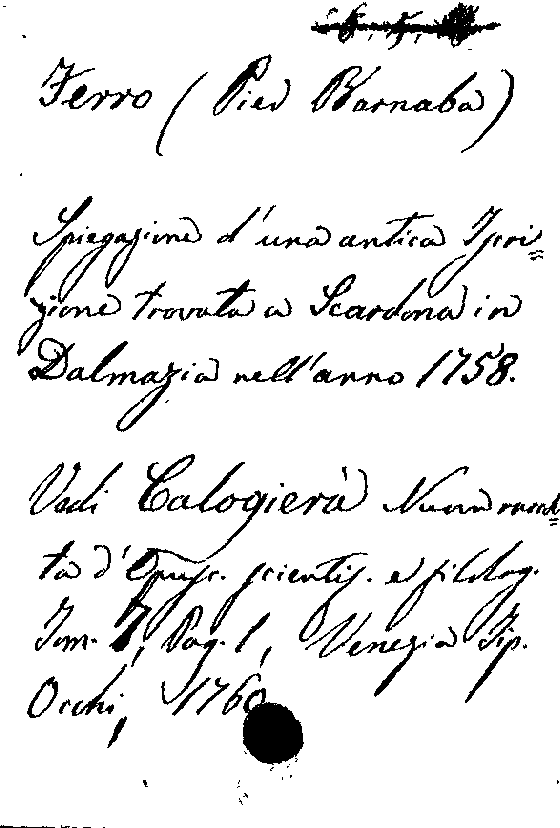 Ferro (Pier Barnaba)
Spiegazione d'una antica Iscri=
zione trovata a Scardona in
Dalmazia nell'anno 1758.
Vedi Calogierà Nuova raccol=
ta d'Opusc. scientif. e filolog.
Tom. 7, Pag. 1, Venezia Tip.
Occhi, 1760